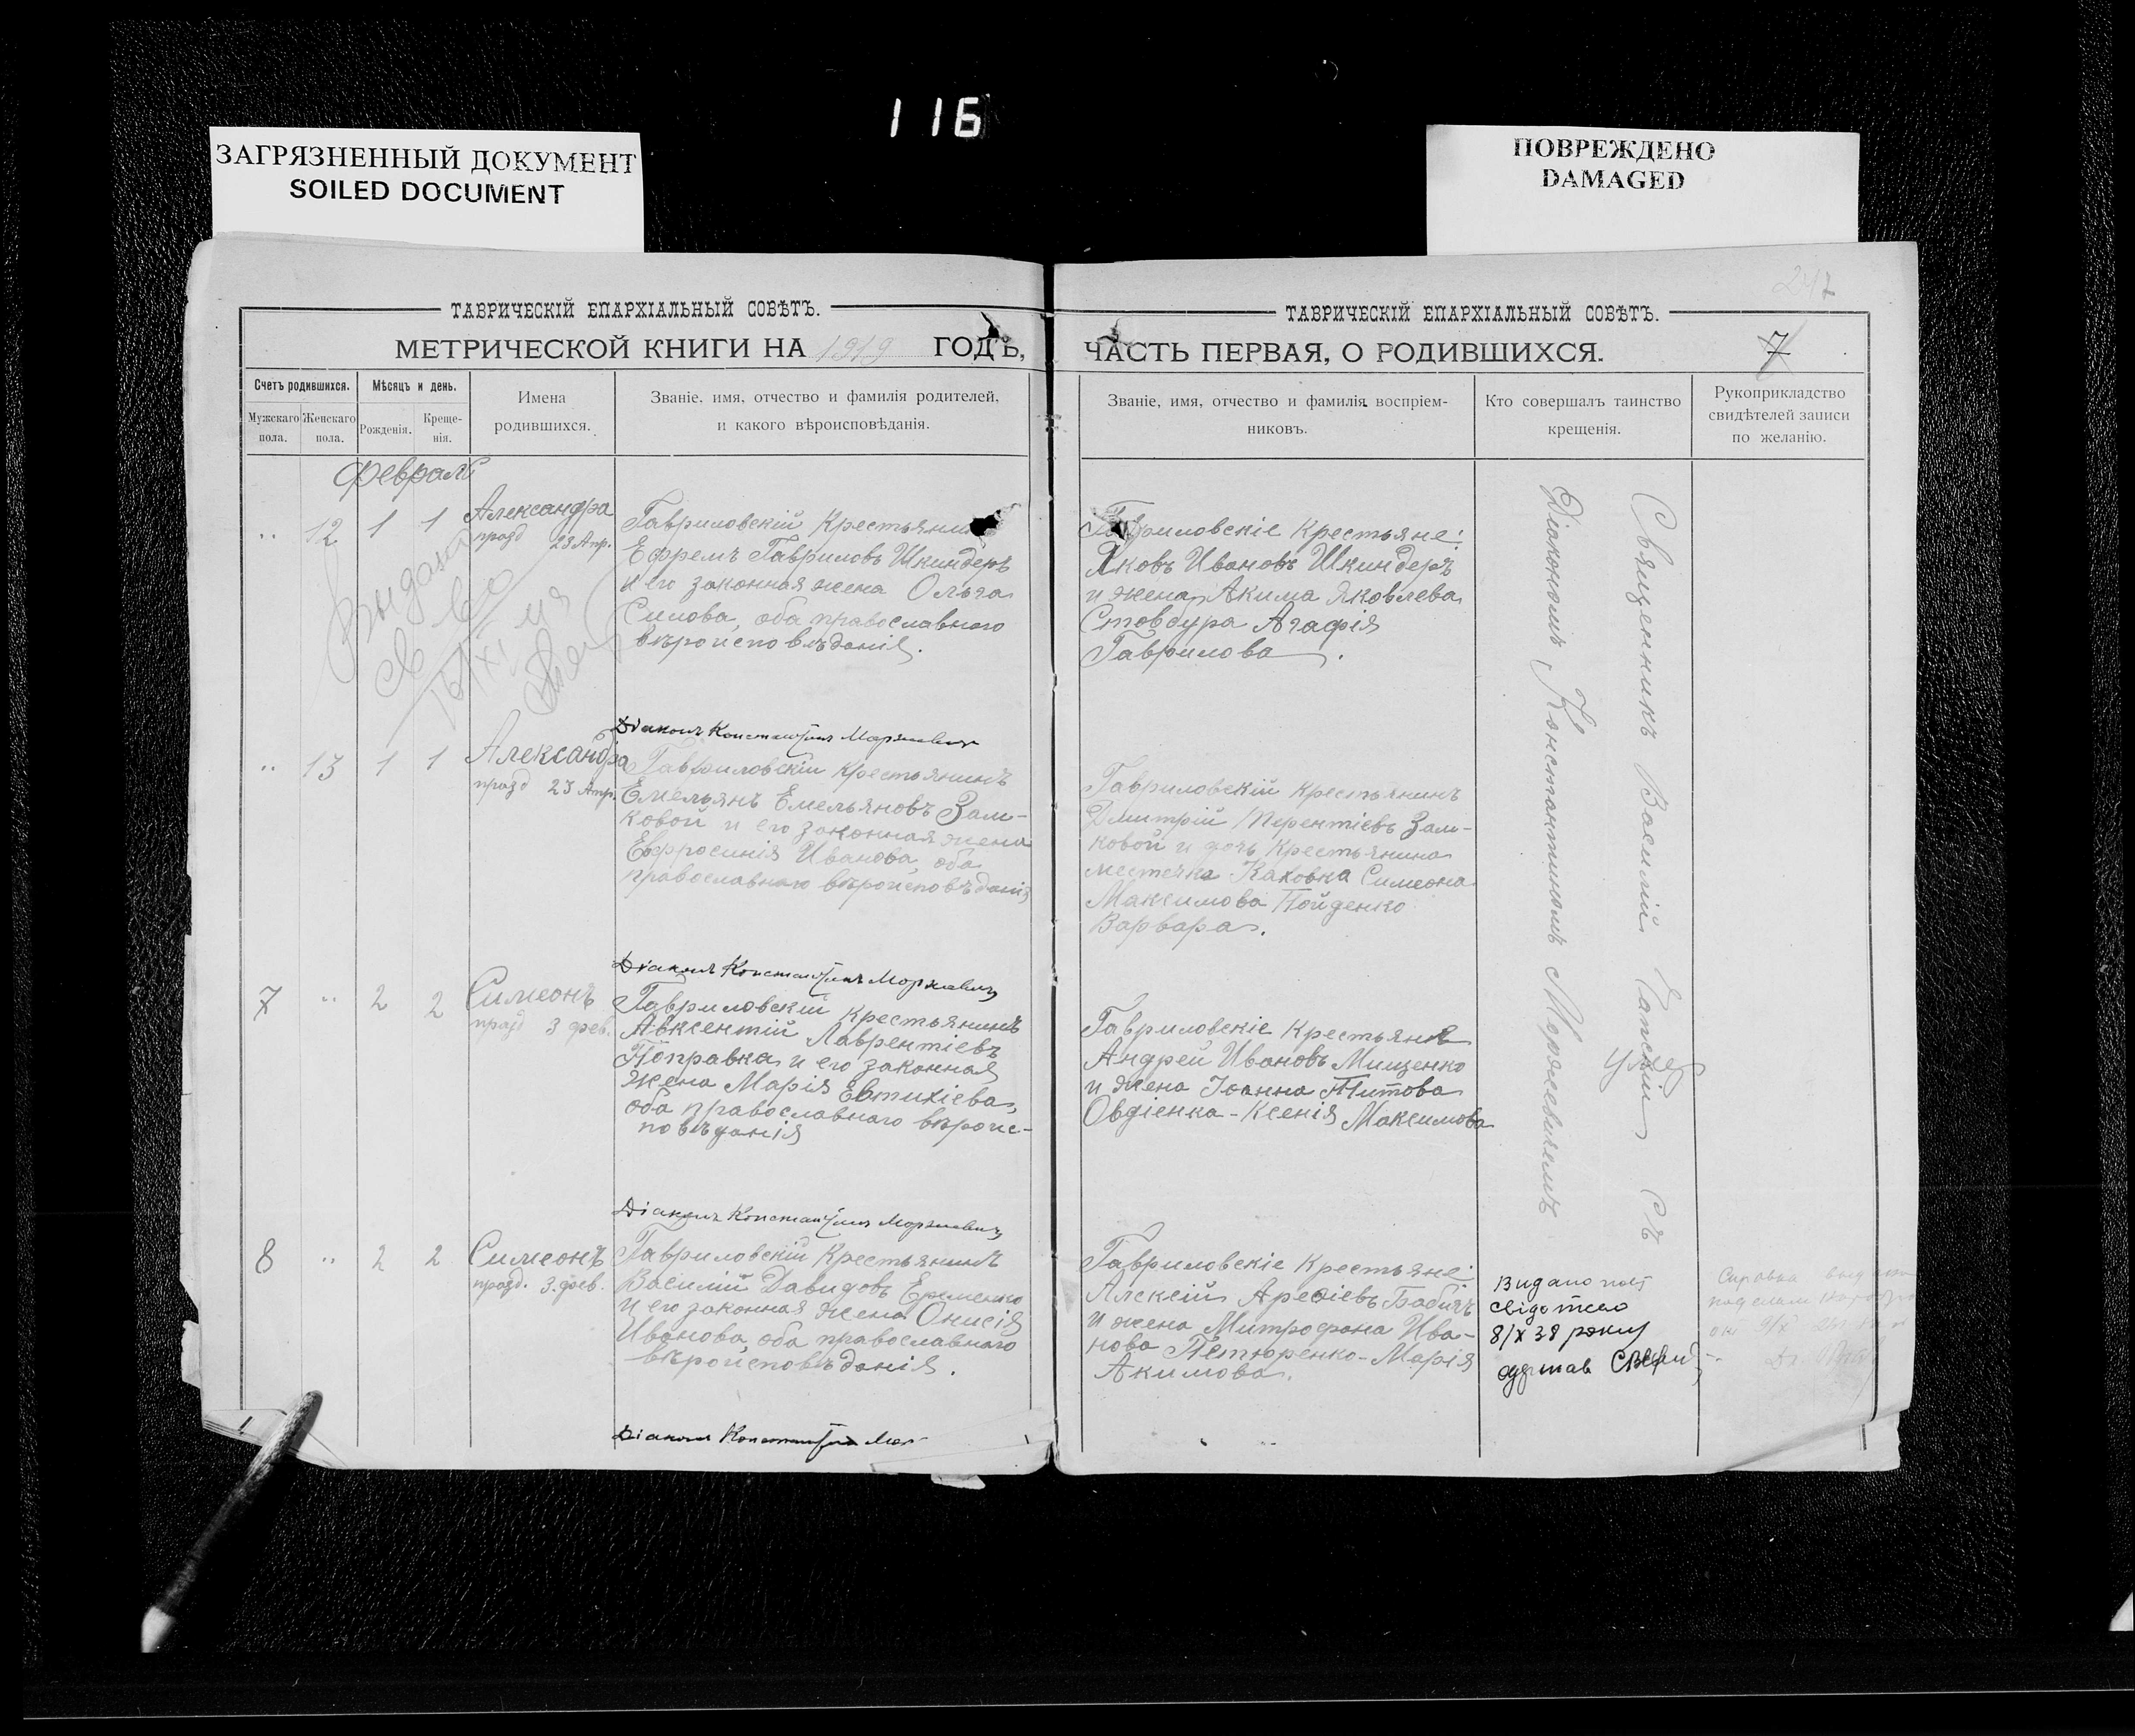 116
ЗАГРЯЗНЕННЫЙ ДОКУМЕНТ
SOILED DOCUMENT
ПОВРЕЖДЕНО
DAMAGED
ТАВРИЧЕСКІЙ ЕПАРХІАЛЬНЫЙ СОВѢТЪ.
МЕТРИЧЕСКОЙ КНИГИ НА 1919 ГОДЪ,
Счетъ родившихся.
Мужскаго пола.
Женскаго пола.
Мѣсяцъ и день.
Рожденія.
Креще-
нія.
Имена
родившихся.
Званіе, имя, отчество и фамилія родителей,
и какого вѣроисповѣданія.
Февраль
" 12 1 1
Александра
празд 23 Апр.
Гавриловскій Крестьянин
Ефремъ Гавриловъ Шкиндеръ
и его законная жена Ольга
Силова, оба православного
вѣроисповѣданія.
Діаконъ Константинъ Моржевичъ
" 13 1 1
Александра
празд 23 Апр.
Гавриловскій Крестьянинъ
Емельянъ Емельяновъ Зам-
ковой и его законная жена
Евфросинія Иванова, оба
православнаго вѣроисповѣданія
Діаконъ Константинъ Моржевичъ
7 " 2 2
Симеонъ
празд 3 фев.
Гавриловскій Крестьянинъ
Авксентій Лаврентіевъ
Поправка и его законная
жена Марія Евтихіева,
оба православнаго вѣроис-
повѣданія
Діаконъ Константинъ Моржевичъ
8 " 2 2
Симеонъ
празд. 3. фев.
Гавриловскій Крестьянинъ
Василій Давидовъ Еременко
и его законная жена Онисія
Иванова, оба православнаго
вѣроисповѣданія.
Діаконъ Константинъ Мор
ТАВРИЧЕСКІЙ ЕПАРХІАЛЬНЫЙ СОВѢТЪ.
ЧАСТЬ ПЕРВАЯ, О РОДИВШИХСЯ.
7
Званіе, имя, отчество и фамилія воспріем-
никовъ.
Кто совершалъ таинство
крещенія.
Рукоприкладство
свидѣтелей записи
по желанію.
Гавриловскіе Крестьяне:
Яковъ Ивановъ Шкиндеръ
и жена Акима Яковлева
Стовбура Агафія
Гаврилова.
Гавриловскій Крестьянинъ
Дмитрій Терентіевъ Зам-
ковой и дочь Крестьянина
местечка Каховка Симеона
Максимова Пойденко
Варвара.
Гавриловскіе Крестьяне
Андрей Ивановъ Мищенко
и жена Іоанна Титова
Овдіенка-Ксенія Максимова
Гавриловскіе Крестьяне:
Алексій Арефіевъ Бабичъ
и жена Митрофана Ива-
нова Петюренко-Марія
Акимова.
Священникъ Василій съ
Діакономъ Константиномъ Моржевичемъ
Видано
свідотство
8/X 38 року
одержав
Справка